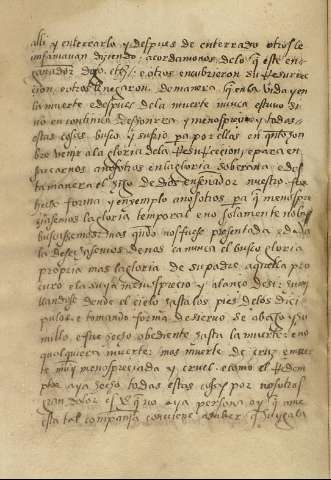 alli y enterrarlo y despues de enterrado otros le
infamauan diziendo: acordamonos de lo q̃ este en
gañador dixo. etc̃. e otros encubrieron su Resurre
cion, otros negaron. de manera q̃ en la vida y en
la muerte e despues de la muerte nunca estuuo si
no en continua desonrra y menosprecio y todas
estas cosas busco y sufrio pa por ellas en quãto hõ
bre venir a la gloria de la Resurreccion, e para en
salçarnos a nosotros en la gloria soberana, e des
ta manera el hijo de dios enseñador nuestro, fue
hecho forma y enxemplo a nosotros pa q̃ menospre
ciasemos la gloria temporal e no solamente no la
buscassemos, mas quãdo nos fuese presentada e dada
la desechasemos de nos ca nunca el busco gloria
propria mas la gloria de su padre, aquella pro
curo e la suya menosprecio y alanço de si: humi
llandose dende el cielo hasta los pies de los dici
pulos. e tomando forma de sieruo se abaxo y hu
millo. e fue hecho obediente hasta la muerte: e no
qualquiera muerte: mas muerte de cruz e muer
te muy menospreciada y cruel. e como el Redem
ptor aya hecho todas estas cosas por nosotros
gran dolor es q̃ no aya persona oy q̃ ame
esta tal compañia conuiene a saber